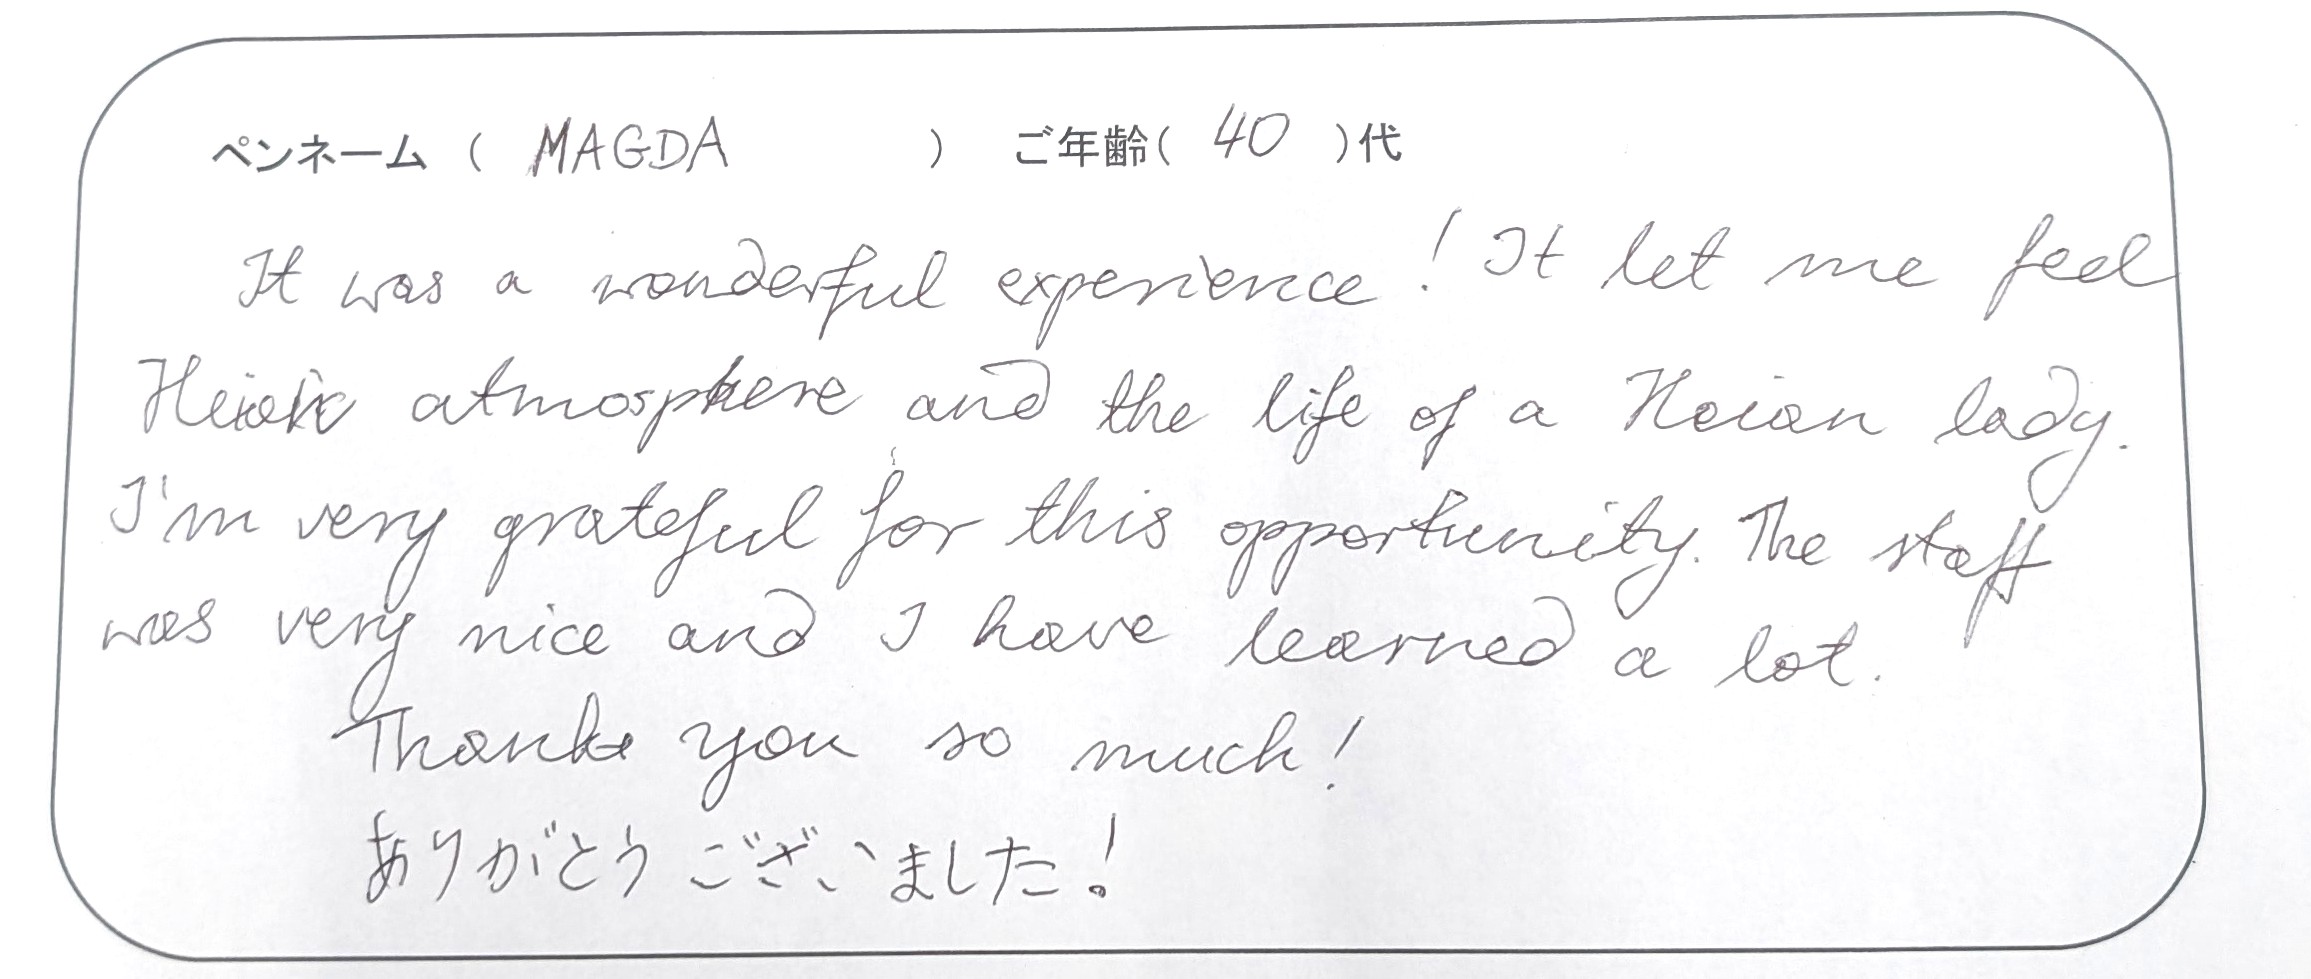 ペンネーム ( MAGDA ) ご年齢( 40 )代
It was a wonderful experience! It let me feel
atmosphere and the life of a Heian lady.
I'm very grateful for this opportunity. The staff
was very nice and I have learned a lot.
Thank you so much!
ありがとうございました!